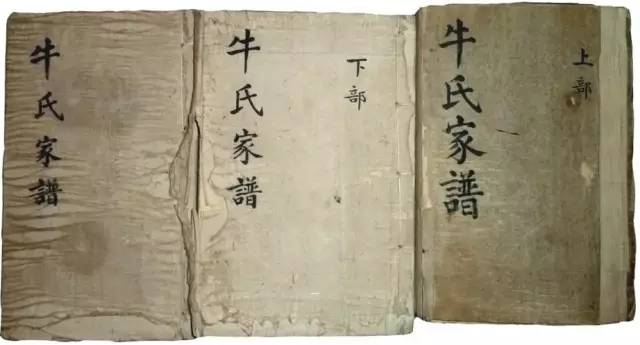 牛氏家譜
牛氏家譜
下部
牛氏家譜
上部